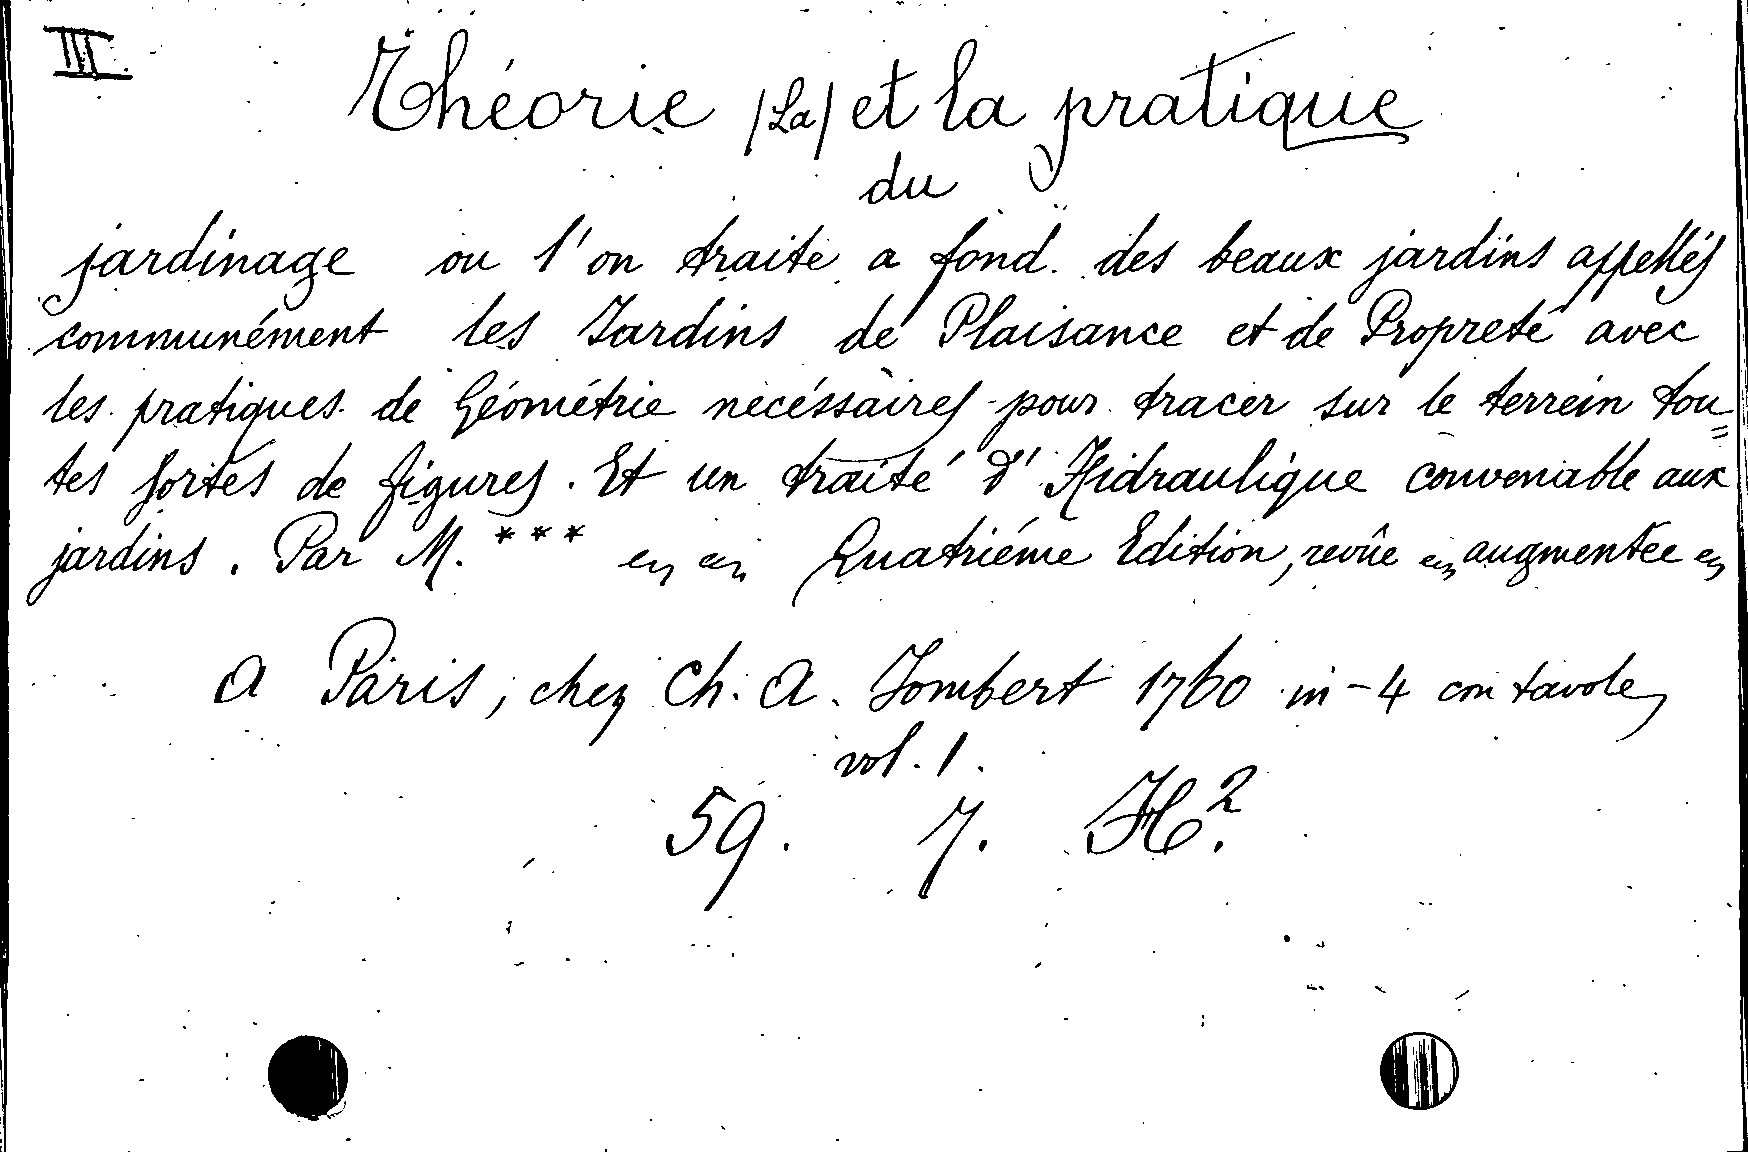 III.
Théorie (La) et la pratique
du
jardinage ou l'on traite a fond. des beaux jardins appellés
communément les Jardins de Plaisance et de Propreté avec
les pratiques de Géométrie necéssaires pour tracer sur le terrein tou=
tes sortes de figures. Et un traité d'Hidraulique convenable aux
jardins. Par M. *** Quatriéme Edition, revûe augmentée
A Paris, chez Ch. A. Jombert 1760 in-4 con tavole
vol. 1.
59. 7. H².